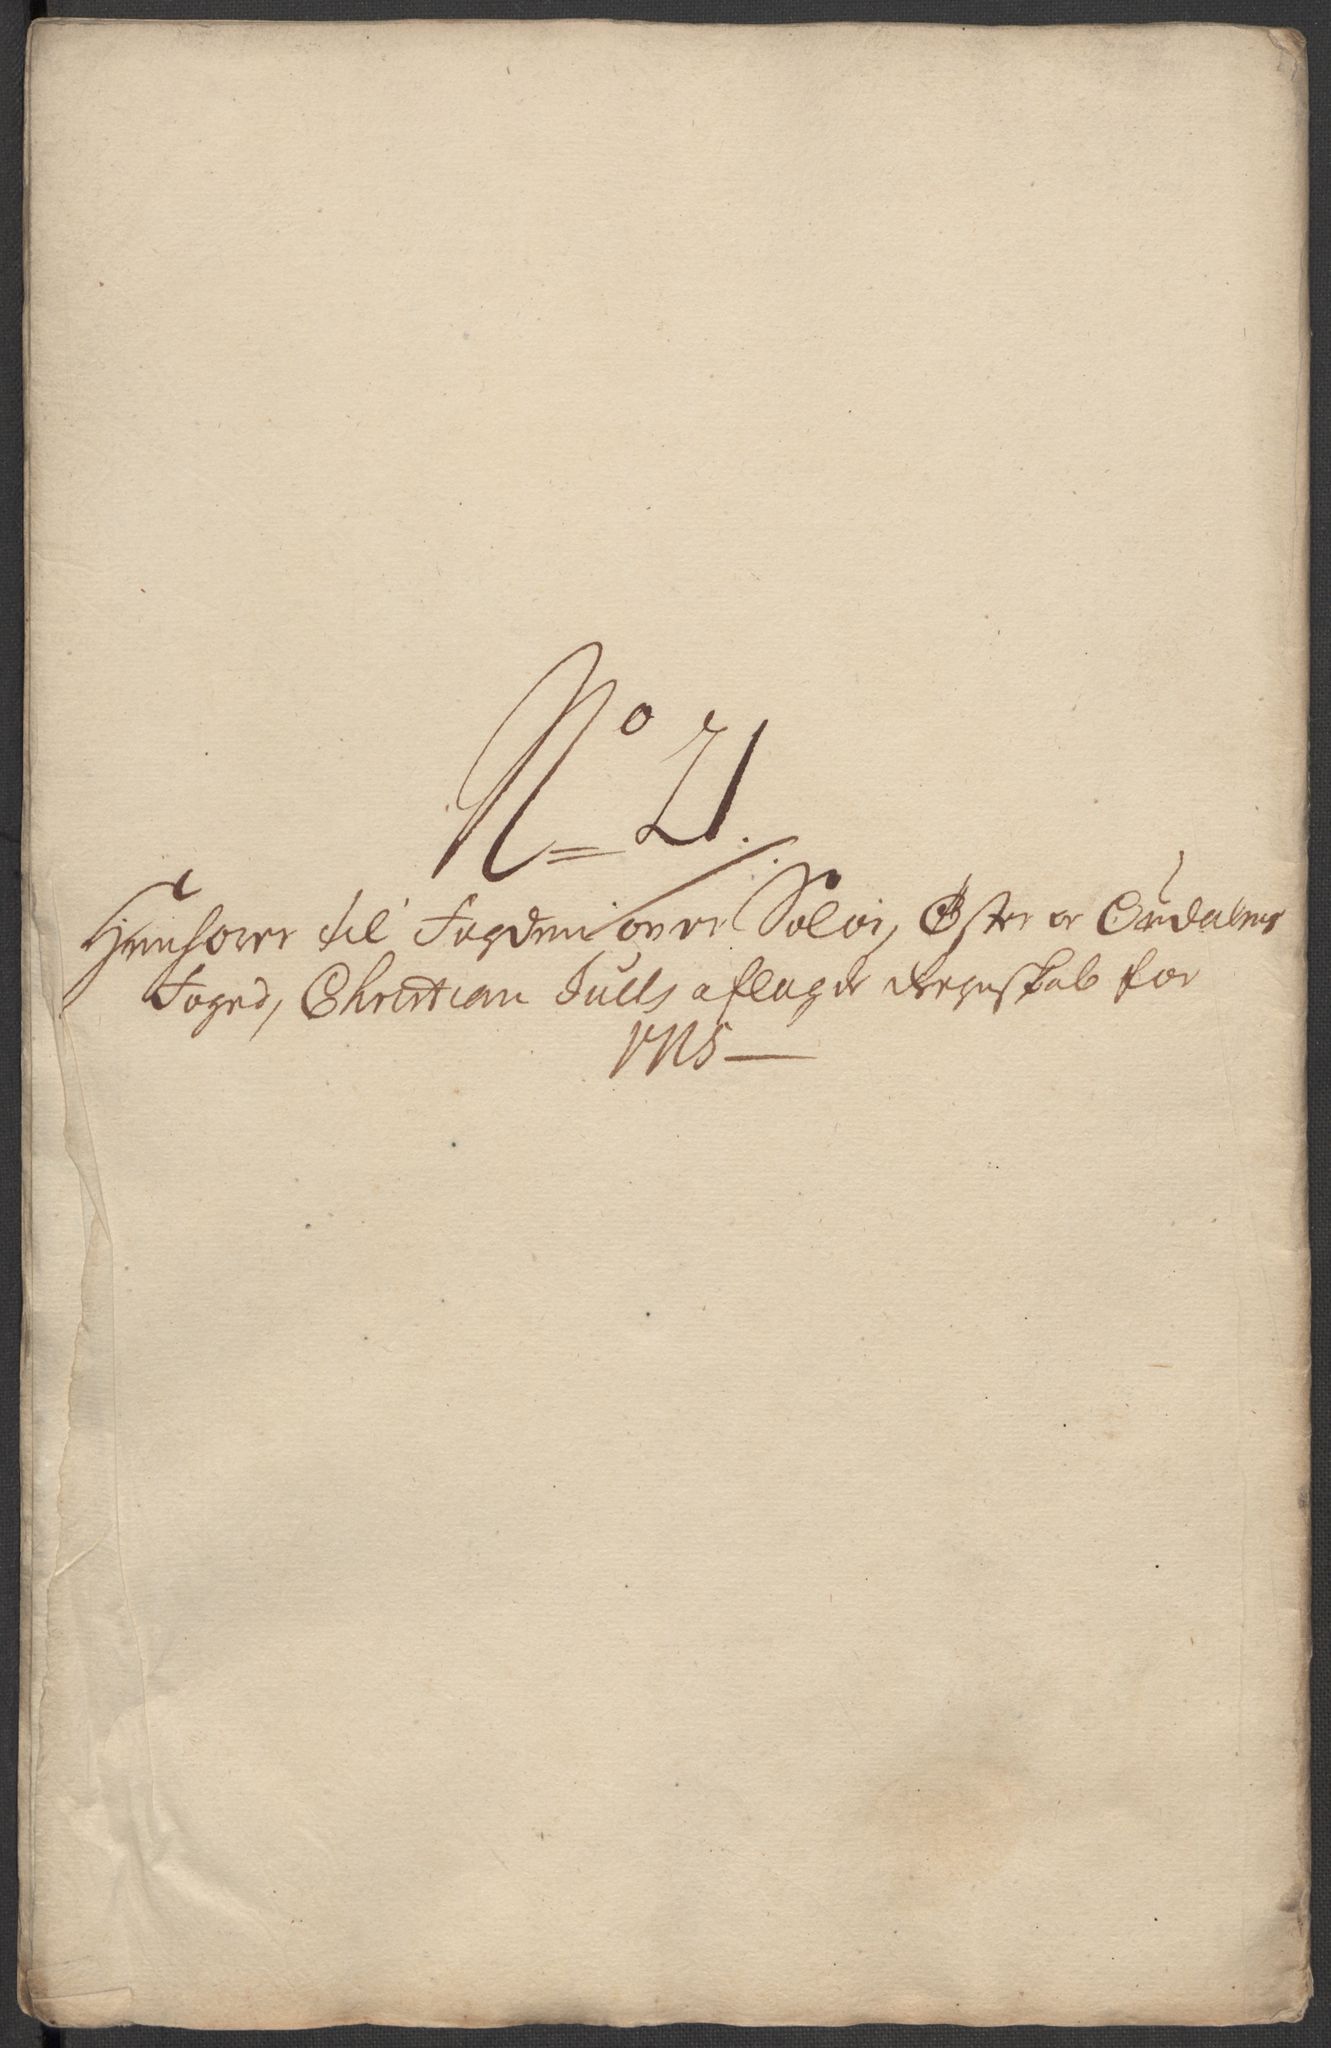 No 21.
Henhører til Fogden over Soløer, Øster oc Oudalens
Foged, Christian Juells aflagde Regnskab for
1715